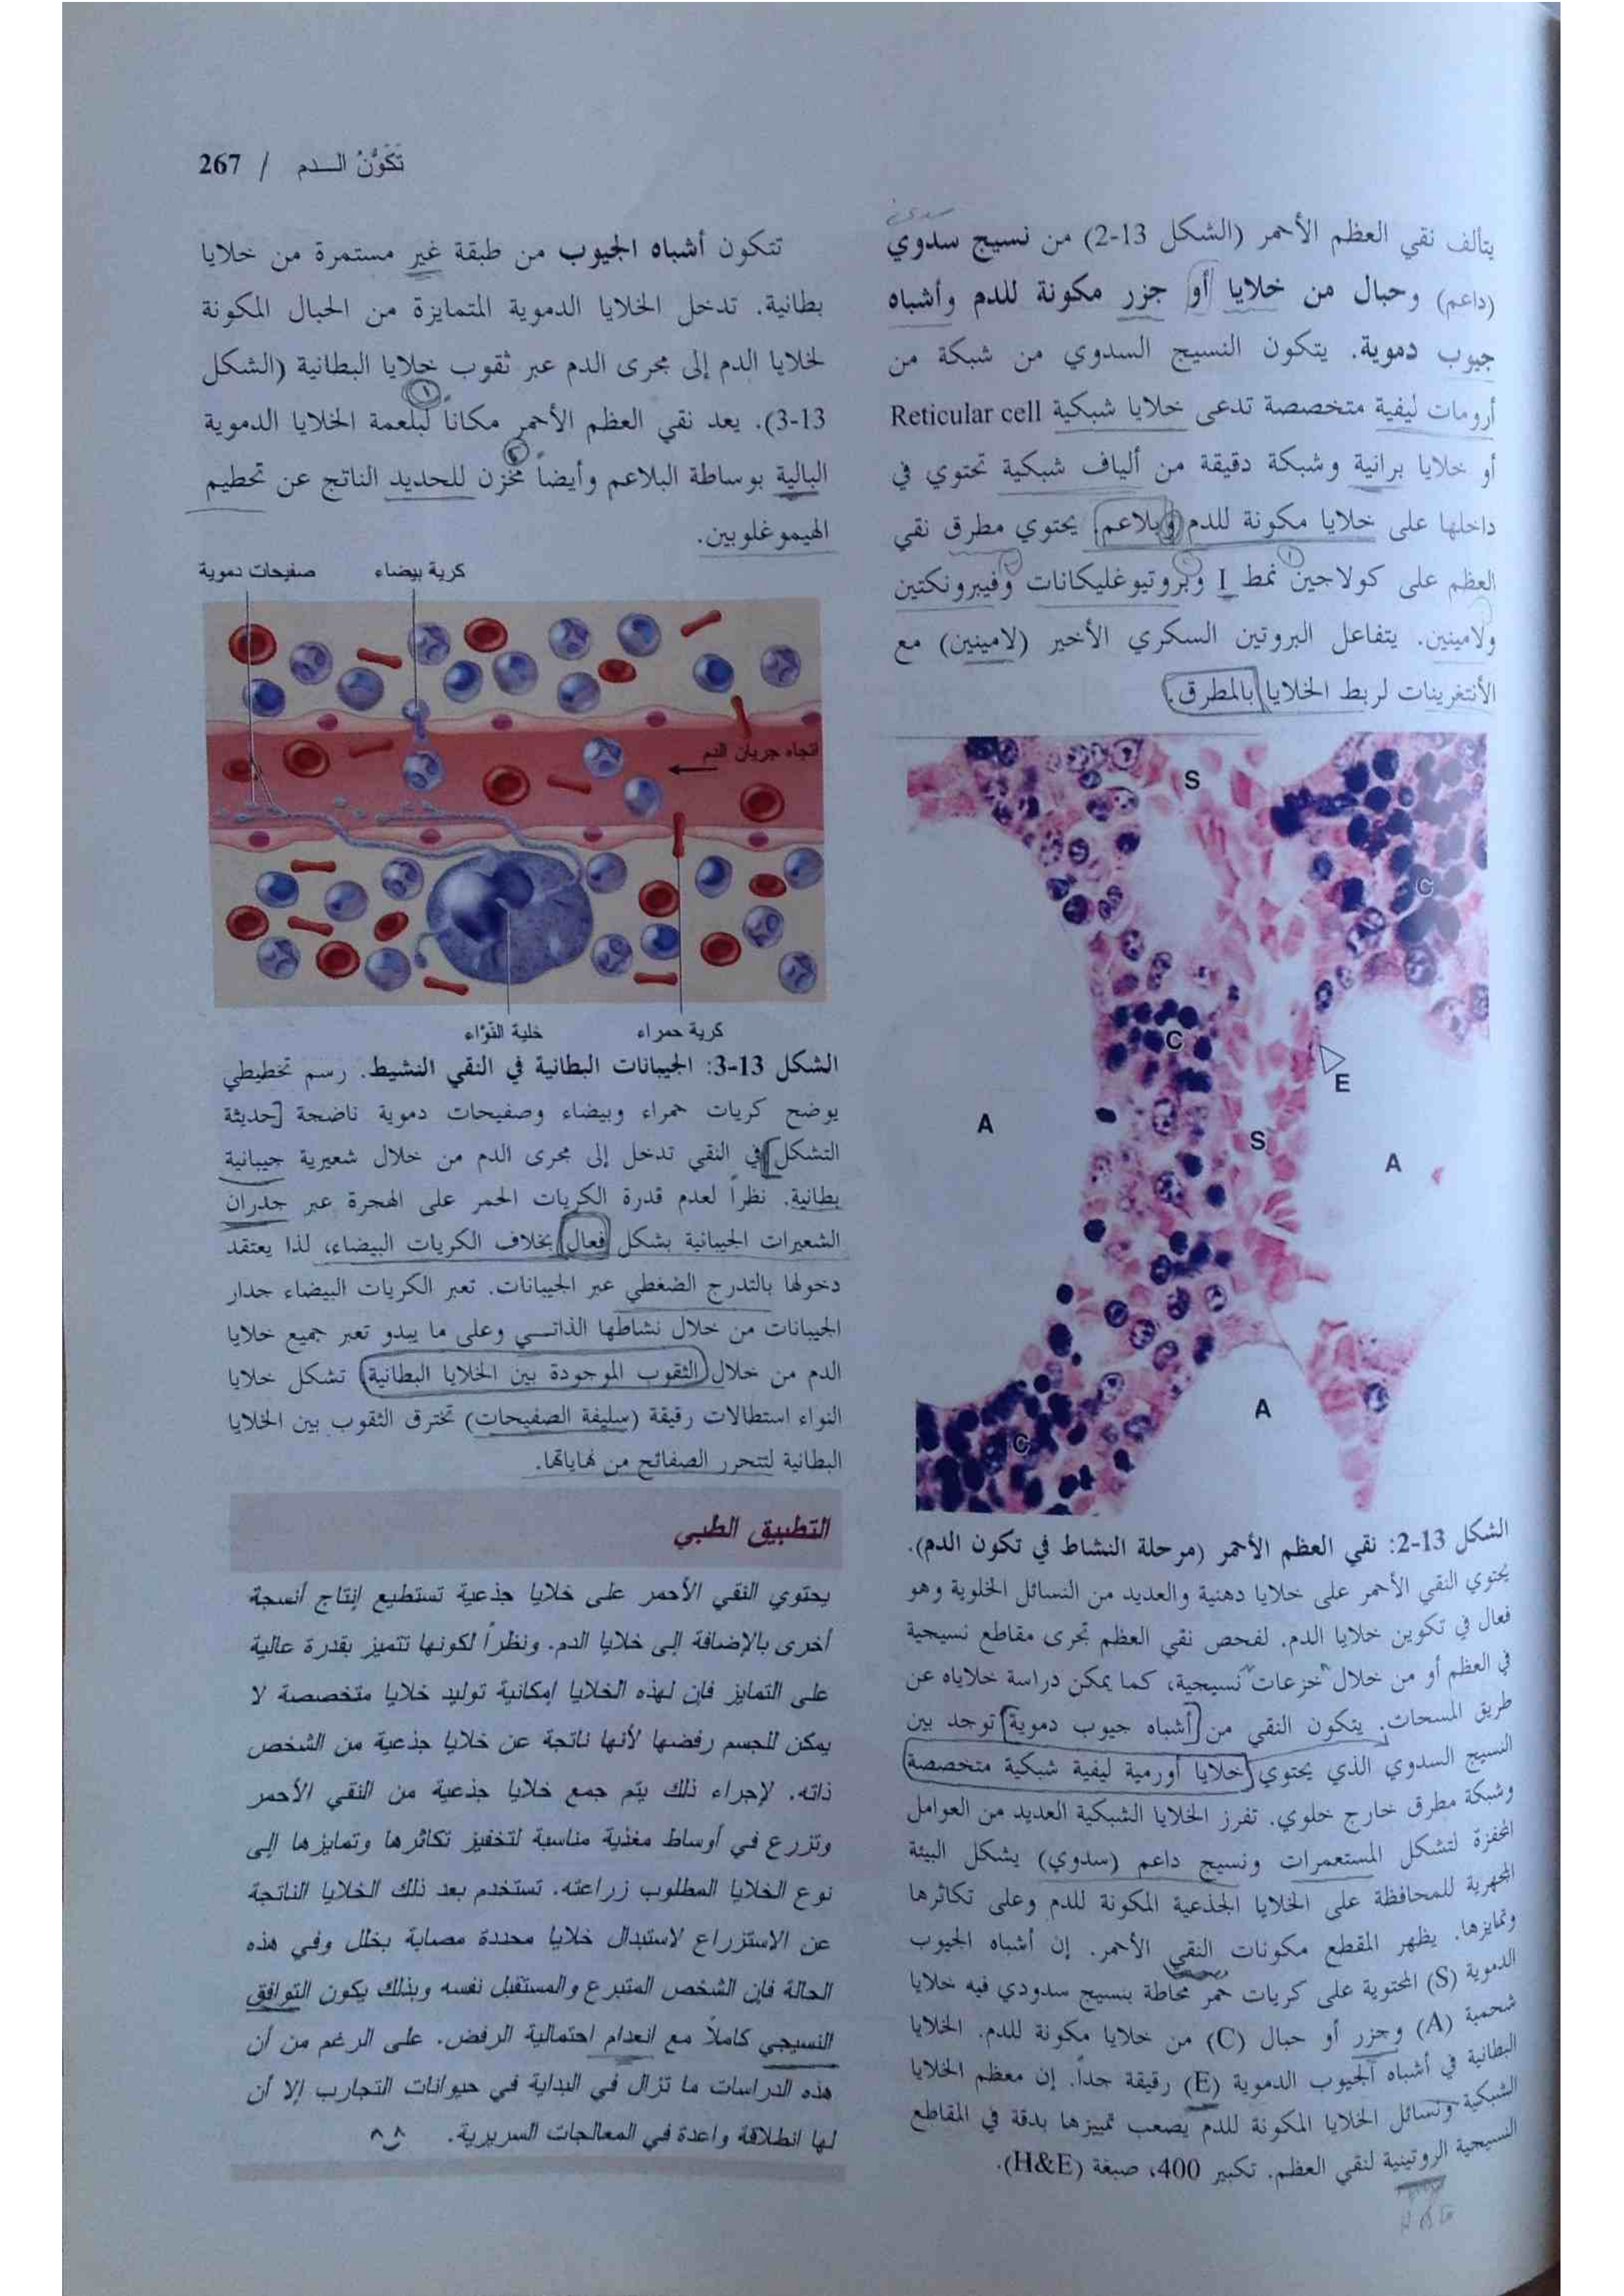 تَكَوُّنُ الـدم / 267
يتألف نقي العظم الأحمر (الشكل 13-2) من نسيج سدوي
(داعم) وحبال من خلايا أو جزر مكونة للدم وأشباه
جيوب دموية. يتكون النسيج السدوي من شبكة من
أرومات ليفية متخصصة تدعى خلايا شبكية Reticular cell
أو خلايا برانية وشبكة دقيقة من ألياف شبكية تحتوي في
داخلها على خلايا مكونة للدم وبلاعم. يحتوي مطرق نقي
العظم على كولاجين نمط I وبروتيوغليكانات وفيبرونكتين
ولامينين. يتفاعل البروتين السكري الأخير (لامينين) مع
الأنتغرينات لربط الخلايا بالمطرق.
S
C
C
E
A
S
A
A
C
الشكل 13-2: نقي العظم الأحمر (مرحلة النشاط في تكون الدم).
يحتوي النقي الأحمر على خلايا دهنية والعديد من النسائل الخلوية وهو
فعال في تكوين خلايا الدم. لفحص نقي العظم تجرى مقاطع نسيجية
في العظم أو من خلال خزعات نسيجية، كما يمكن دراسة خلاياه عن
طريق المسحات. يتكون النقي من أشباه جيوب دموية توجد بين
النسيج السدوي الذي يحتوي خلايا أورمية ليفية شبكية متخصصة
وشبكة مطرق خارج خلوي. تفرز الخلايا الشبكية العديد من العوامل
المحفزة لتشكل المستعمرات ونسيج داعم (سدوي) يشكل البيئة
المجهرية للمحافظة على الخلايا الجذعية المكونة للدم وعلى تكاثرها
وتمايزها. يظهر المقطع مكونات النقي الأحمر. إن أشباه الجيوب
الدموية (S) المحتوية على كريات حمر محاطة بنسيج سدودي فيه خلايا
شحمية (A) وجزر أو حبال (C) من خلايا مكونة للدم. الخلايا
البطانية في أشباه الجيوب الدموية (E) رقيقة جداً. إن معظم الخلايا
الشبكية ونسائل الخلايا المكونة للدم يصعب تمييزها بدقة في المقاطع
النسيجية الروتينية لنقي العظم. تكبير 400، صبغة (H&E).
H&E
تتكون أشباه الجيوب من طبقة غير مستمرة من خلايا
بطانية. تدخل الخلايا الدموية المتمايزة من الحبال المكونة
لخلايا الدم إلى مجرى الدم عبر ثقوب خلايا البطانية (الشكل
13-3). يعد نقي العظم الأحمر مكاناً لبلعمة الخلايا الدموية
البالية بوساطة البلاعم وأيضاً مخزن للحديد الناتج عن تحطيم
الهيموغلوبين.
كرية بيضاء
صفيحات دموية
اتجاه جريان الدم
كرية حمراء
خلية النوّاء
الشكل 13-3: الجيبانات البطانية في النقي النشيط. رسم تخطيطي
يوضح كريات حمراء وبيضاء وصفيحات دموية ناضجة [حديثة
التشكل] في النقي تدخل إلى مجرى الدم من خلال شعيرية جيبانية
بطانية. نظراً لعدم قدرة الكريات الحمر على الهجرة عبر جدران
الشعيرات الجيبانية بشكل فعال بخلاف الكريات البيضاء، لذا يعتقد
دخولها بالتدرج الضغطي عبر الجيبانات. تعبر الكريات البيضاء جدار
الجيبانات من خلال نشاطها الذاتي وعلى ما يبدو تعبر جميع خلايا
الدم من خلال الثقوب الموجودة بين الخلايا البطانية. تشكل خلايا
النواء استطالات رقيقة (سليفة الصفيحات) تخترق الثقوب بين الخلايا
البطانية لتتحرر الصفائح من نهاياتها.
التطبيق الطبي
يحتوي النقي الأحمر على خلايا جذعية تستطيع إنتاج أنسجة
أخرى بالإضافة إلى خلايا الدم. ونظراً لكونها تتميز بقدرة عالية
على التمايز فإن لهذه الخلايا إمكانية توليد خلايا متخصصة لا
يمكن للجسم رفضها لأنها ناتجة عن خلايا جذعية من الشخص
ذاته. لإجراء ذلك يتم جمع خلايا جذعية من النقي الأحمر
وتزرع في أوساط مغذية مناسبة لتخفيز تكاثرها وتمايزها إلى
نوع الخلايا المطلوب زراعته. تستخدم بعد ذلك الخلايا الناتجة
عن الاستزراع لاستبدال خلايا محددة مصابة بخلل وفي هذه
الحالة فإن الشخص المتبرع والمستقبل نفسه وبذلك يكون التوافق
النسيجي كاملاً مع انعدام احتمالية الرفض. على الرغم من أن
هذه الدراسات ما تزال في البداية في حيوانات التجارب إلا أن
لها انطلاقة واعدة في المعالجات السريرية.